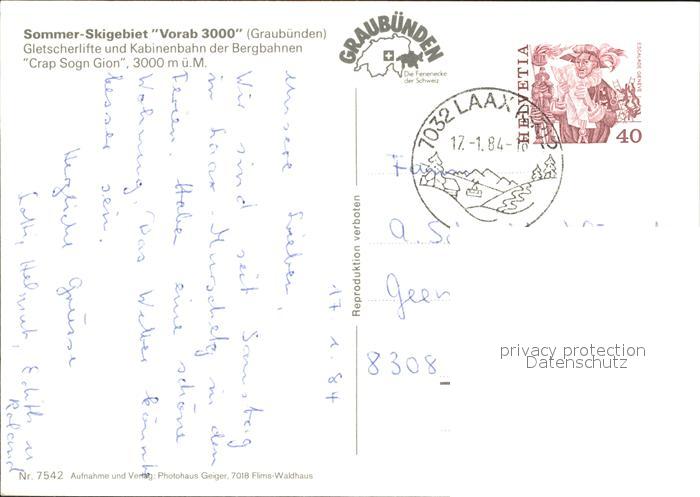 Sommer-Skigebiet "Vorab 3000" (Graubünden)
Gletscherlifte und Kabinenbahn der Bergbahnen
"Crap Sogn Gion", 3000 m ü.M.
GRAUBÜNDEN
Die Ferienecke
der Schweiz
HELVETIA
ESCALADE GENÈVE
40
7032 LAAX
17.-1.84-
17.1.84
Unsere Lieben,
Wir sind seit Samstag
in Laax-Murschetg in den
Ferien. Haben eine schöne
Wohnung, Das Wetter könnte
besser sein.
Herzliche Grüsse
Helmut, Edith u
Roland
A.
8308
Reproduktion verboten
privacy protection
Datenschutz
Nr. 7542 Aufnahme und Verlag: Photohaus Geiger, 7018 Flims-Waldhaus